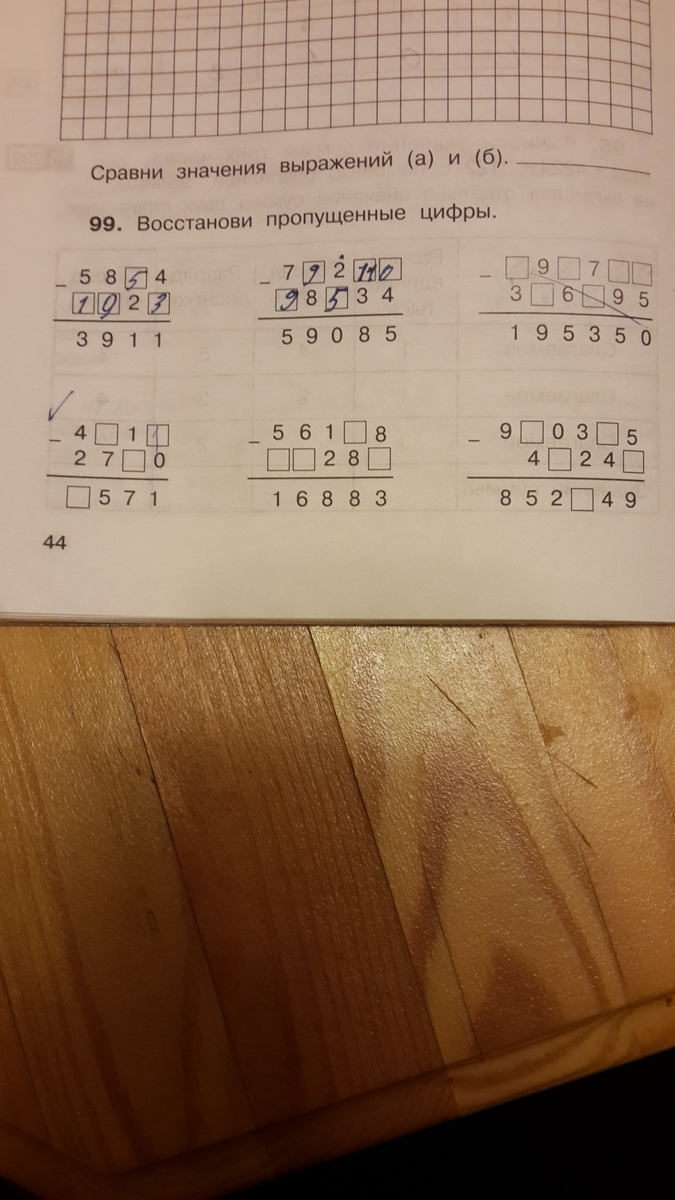 Сравни значения выражений (а) и (б).
99. Восстанови пропущенные цифры.
− 5 8 5 4
1 9 2 3
3 9 1 1
− 7 9 2 □ □
□ 8 5 3 4
5 9 0 8 5
− □ 9 □ 7 □ □
3 □ 6 □ 9 5
1 9 5 3 5 0
− 4 □ 1 1
2 7 □ 0
□ 5 7 1
− 5 6 1 □ 8
□ □ 2 8 □
1 6 8 8 3
− 9 □ 0 3 □ 5
4 □ 2 4 □
8 5 2 □ 4 9
44